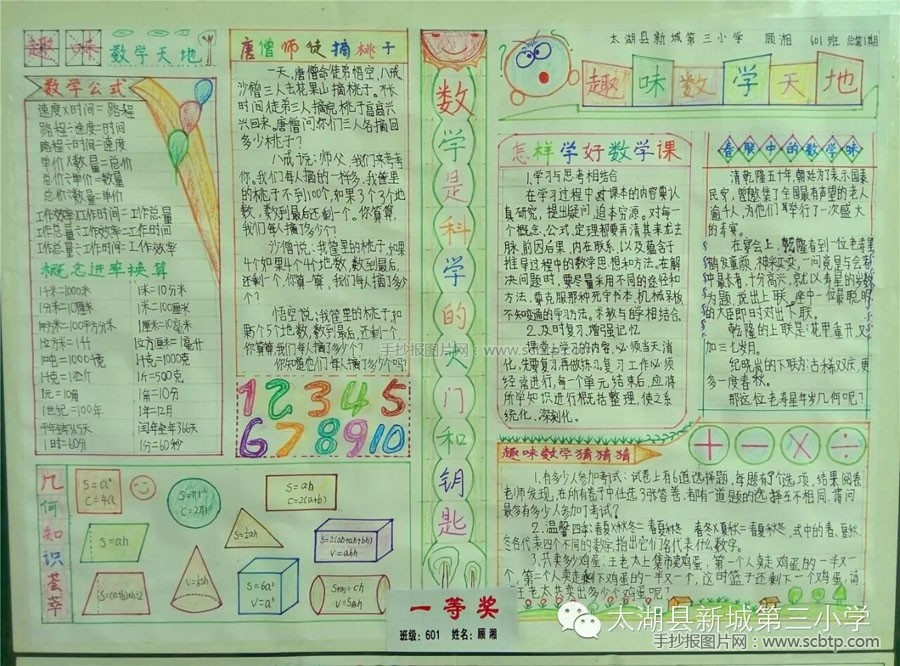 趣味
数学天地
数学公式
速度×时间=路程
路程÷速度=时间
路程÷时间=速度
单价×数量=总价
总价÷单价=数量
总价÷数量=单价
工作效率×工作时间=工作总量
工作总量÷工作效率=工作时间
工作总量÷工作时间=工作效率
概念进率换算
1千米=1000米 1米=10分米
1分米=10厘米 1米=100厘米
1厘米=10毫米
1吨=1000千克 1千克=1000克
1千克=1公斤 1斤=500克
1元=10角 1角=10分
1世纪=100年 1年=12月
平年全年365天 闰年全年366天
1时=60分 1分=60秒
几何知识荟萃
S=a²
C=4a
S=ab
C=2(a+b)
S=ah
S=½ah
S=2(ab+ah+bh)
V=abh
S=(a+b)×h÷2
S=6a²
V=a³
唐僧师徒摘桃子
一天,唐僧命徒弟悟空、八戒
沙僧三人去花果山摘桃子。不长
时间,徒弟三人摘完桃子高高兴
兴回来。唐僧问:你们三人各摘回
多少桃子?
八戒说:师父,我们来考考
你。我们每人摘的一样多,我筐里
的桃子不到100个,如果3个3个地
数,数到最后还剩一个。你算算,
我们每人摘了多少个?
沙僧说:我筐里的桃子,如果
4个4个地数,数到最后,
还剩一个。你算一算,我们每人摘了多少
个?
悟空说:我筐里的桃子,如
果5个5个地数,数到最后,还剩一个。
你算算,我们每人摘了多少个?
你知道他们每人摘了多少个吗?
1 2 3 4 5
6 7 8 9 10
数学是科学的大门和钥匙
太湖县新城第三小学 顾湘 601班 总第1期
趣味数学天地
怎样学好数学课
1.学习与思考相结合
在学习过程中,对课本的内容要认
真研究,提出疑问,追本穷源。对每一
个概念、公式、定理都要弄清其来龙去
脉、前因后果,内在联系,以及蕴含于
推导过程中的数学思想和方法。在解
决问题时,要尽量采用不同的途径和
方法,要克服那种死守书本、机械呆板、
不知变通的学习方法。
2.及时复习,增强记忆
课堂上学习的内容,必须当天消
化,先要复习,再做练习。复习工作必须
经常进行,每一个单元结束后,应将
所学知识进行概括整理,使之系
统化、深刻化。
春联中的数学味
清乾隆五十年,朝廷为了表示国泰
民安,
逾千人,为他们举行了一次盛大
的寿宴。
在宴会上,乾隆看到一位老寿星
乾隆的上联是:花甲重开,又
加三七岁月。
纪晓岚的下联为:古稀双庆,更
多一度春秋。
那这位老寿星年岁几何呢?
趣味数学猜猜猜
+ − × ÷
1.有多少人参加考试:试卷上有6道选择题,每题有3个选项,结果阅卷
老师发现,在所有卷子中任选3张答卷,都有一道题的选择互不相同,请问
最多有多少人参加了考试?
2.温馨四年:春夏×秋冬=夏秋春冬 春冬×秋夏=春夏秋冬,式中的春、夏、秋、
冬各代表四个不同的数字,指出它们各代表什么数字。
3.共卖多少鸡蛋:王老太上集市卖鸡蛋,第一个人买走鸡蛋的一半又一
个,第二个人买走剩下鸡蛋的一半又一个,这时篮子还剩下一个鸡蛋,请问
王老太共卖出多少个鸡蛋呢?
一等奖
班级:601 姓名:顾湘
手抄报图片网:www.scbtp.com
太湖县新城第三小学
手抄报图片网:www.scbtp.com